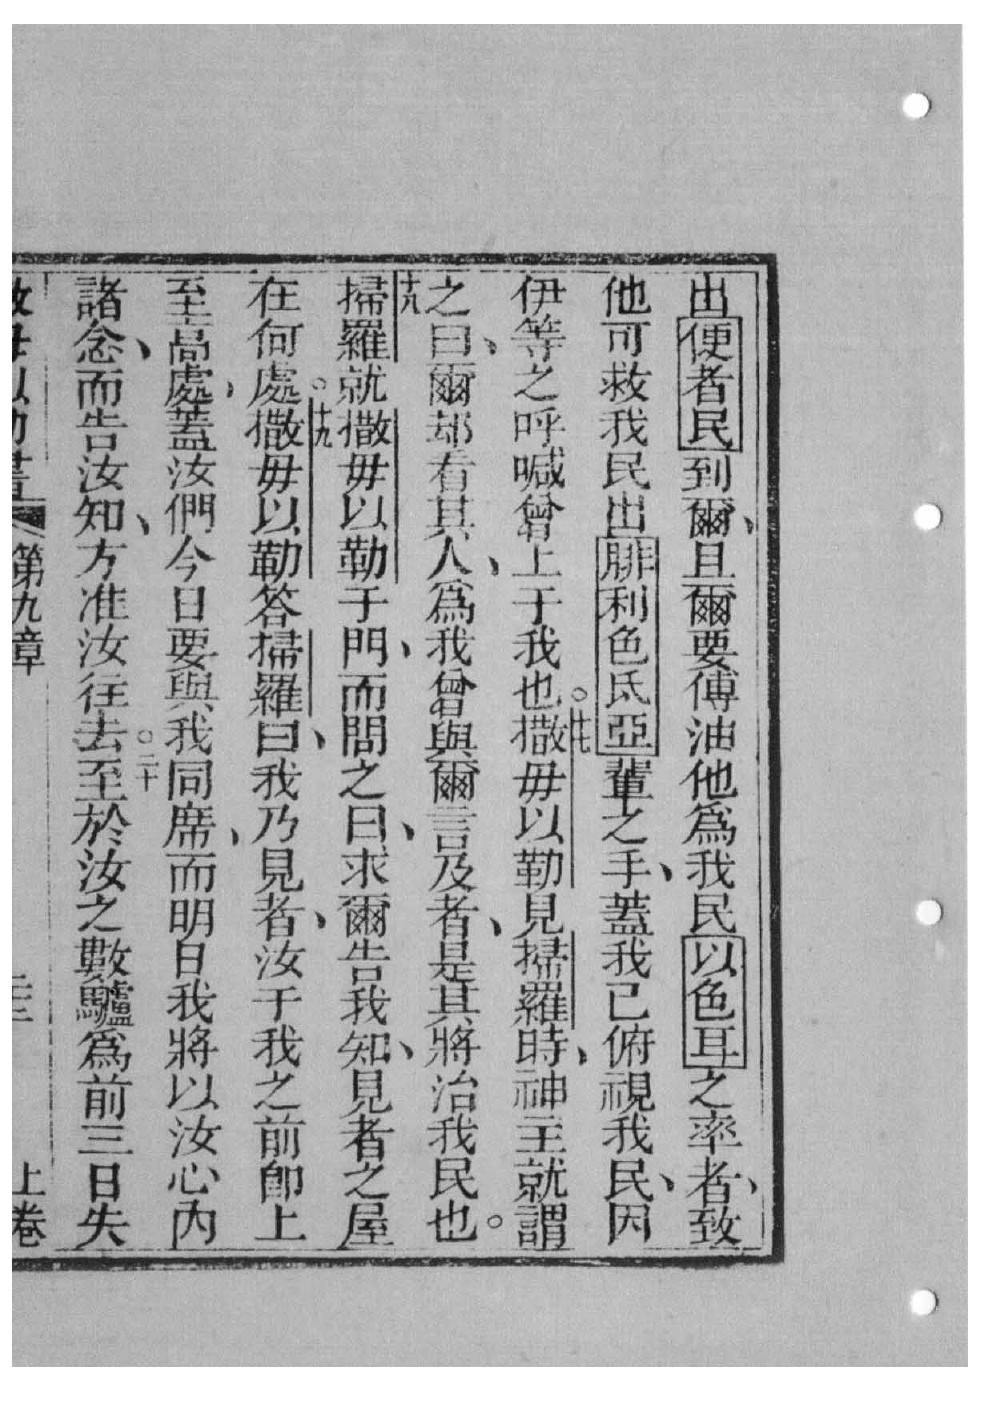 出便者民到爾、且爾要傅油他爲我民以色耳之率者、致
他可救我民出腓利色氐亞輩之手、蓋我已俯視我民、因
伊等之呼喊曾上于我也。十七撒毋以勒見掃羅時、神主就謂
之曰、爾却看其人、爲我曾與爾言及者、是其將治我民也。
十八掃羅就撒毋以勒于門、而問之曰、求爾告我知、見者之屋
在何處。十九撒毋以勒答掃羅曰、我乃見者、汝于我之前卽上
至高處、蓋汝們今日要與我同席、而明日我將以汝心內
諸念、而告汝知、方准汝往去。二十至於汝之數驢爲前三日失
第九章 上卷